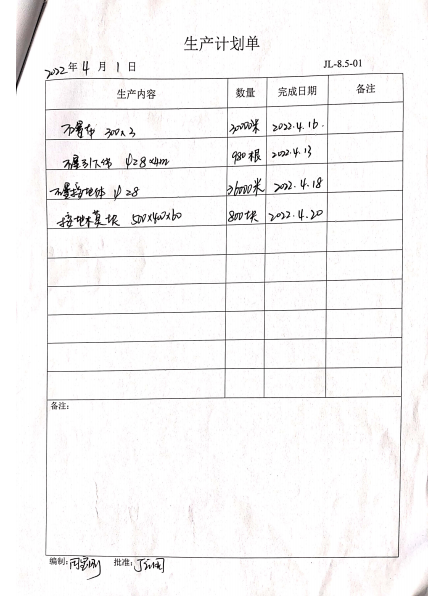 生产计划单
2022年4月1日 JL-8.5-01
生产内容 数量 完成日期 备注
300×3 30000米 2022.4.16.
φ28×4m 980根 2022.4.13
φ28 36000米 2022.4.18
接地模块 500×400×60 800块 2022.4.20
备注:
编制: 批准: